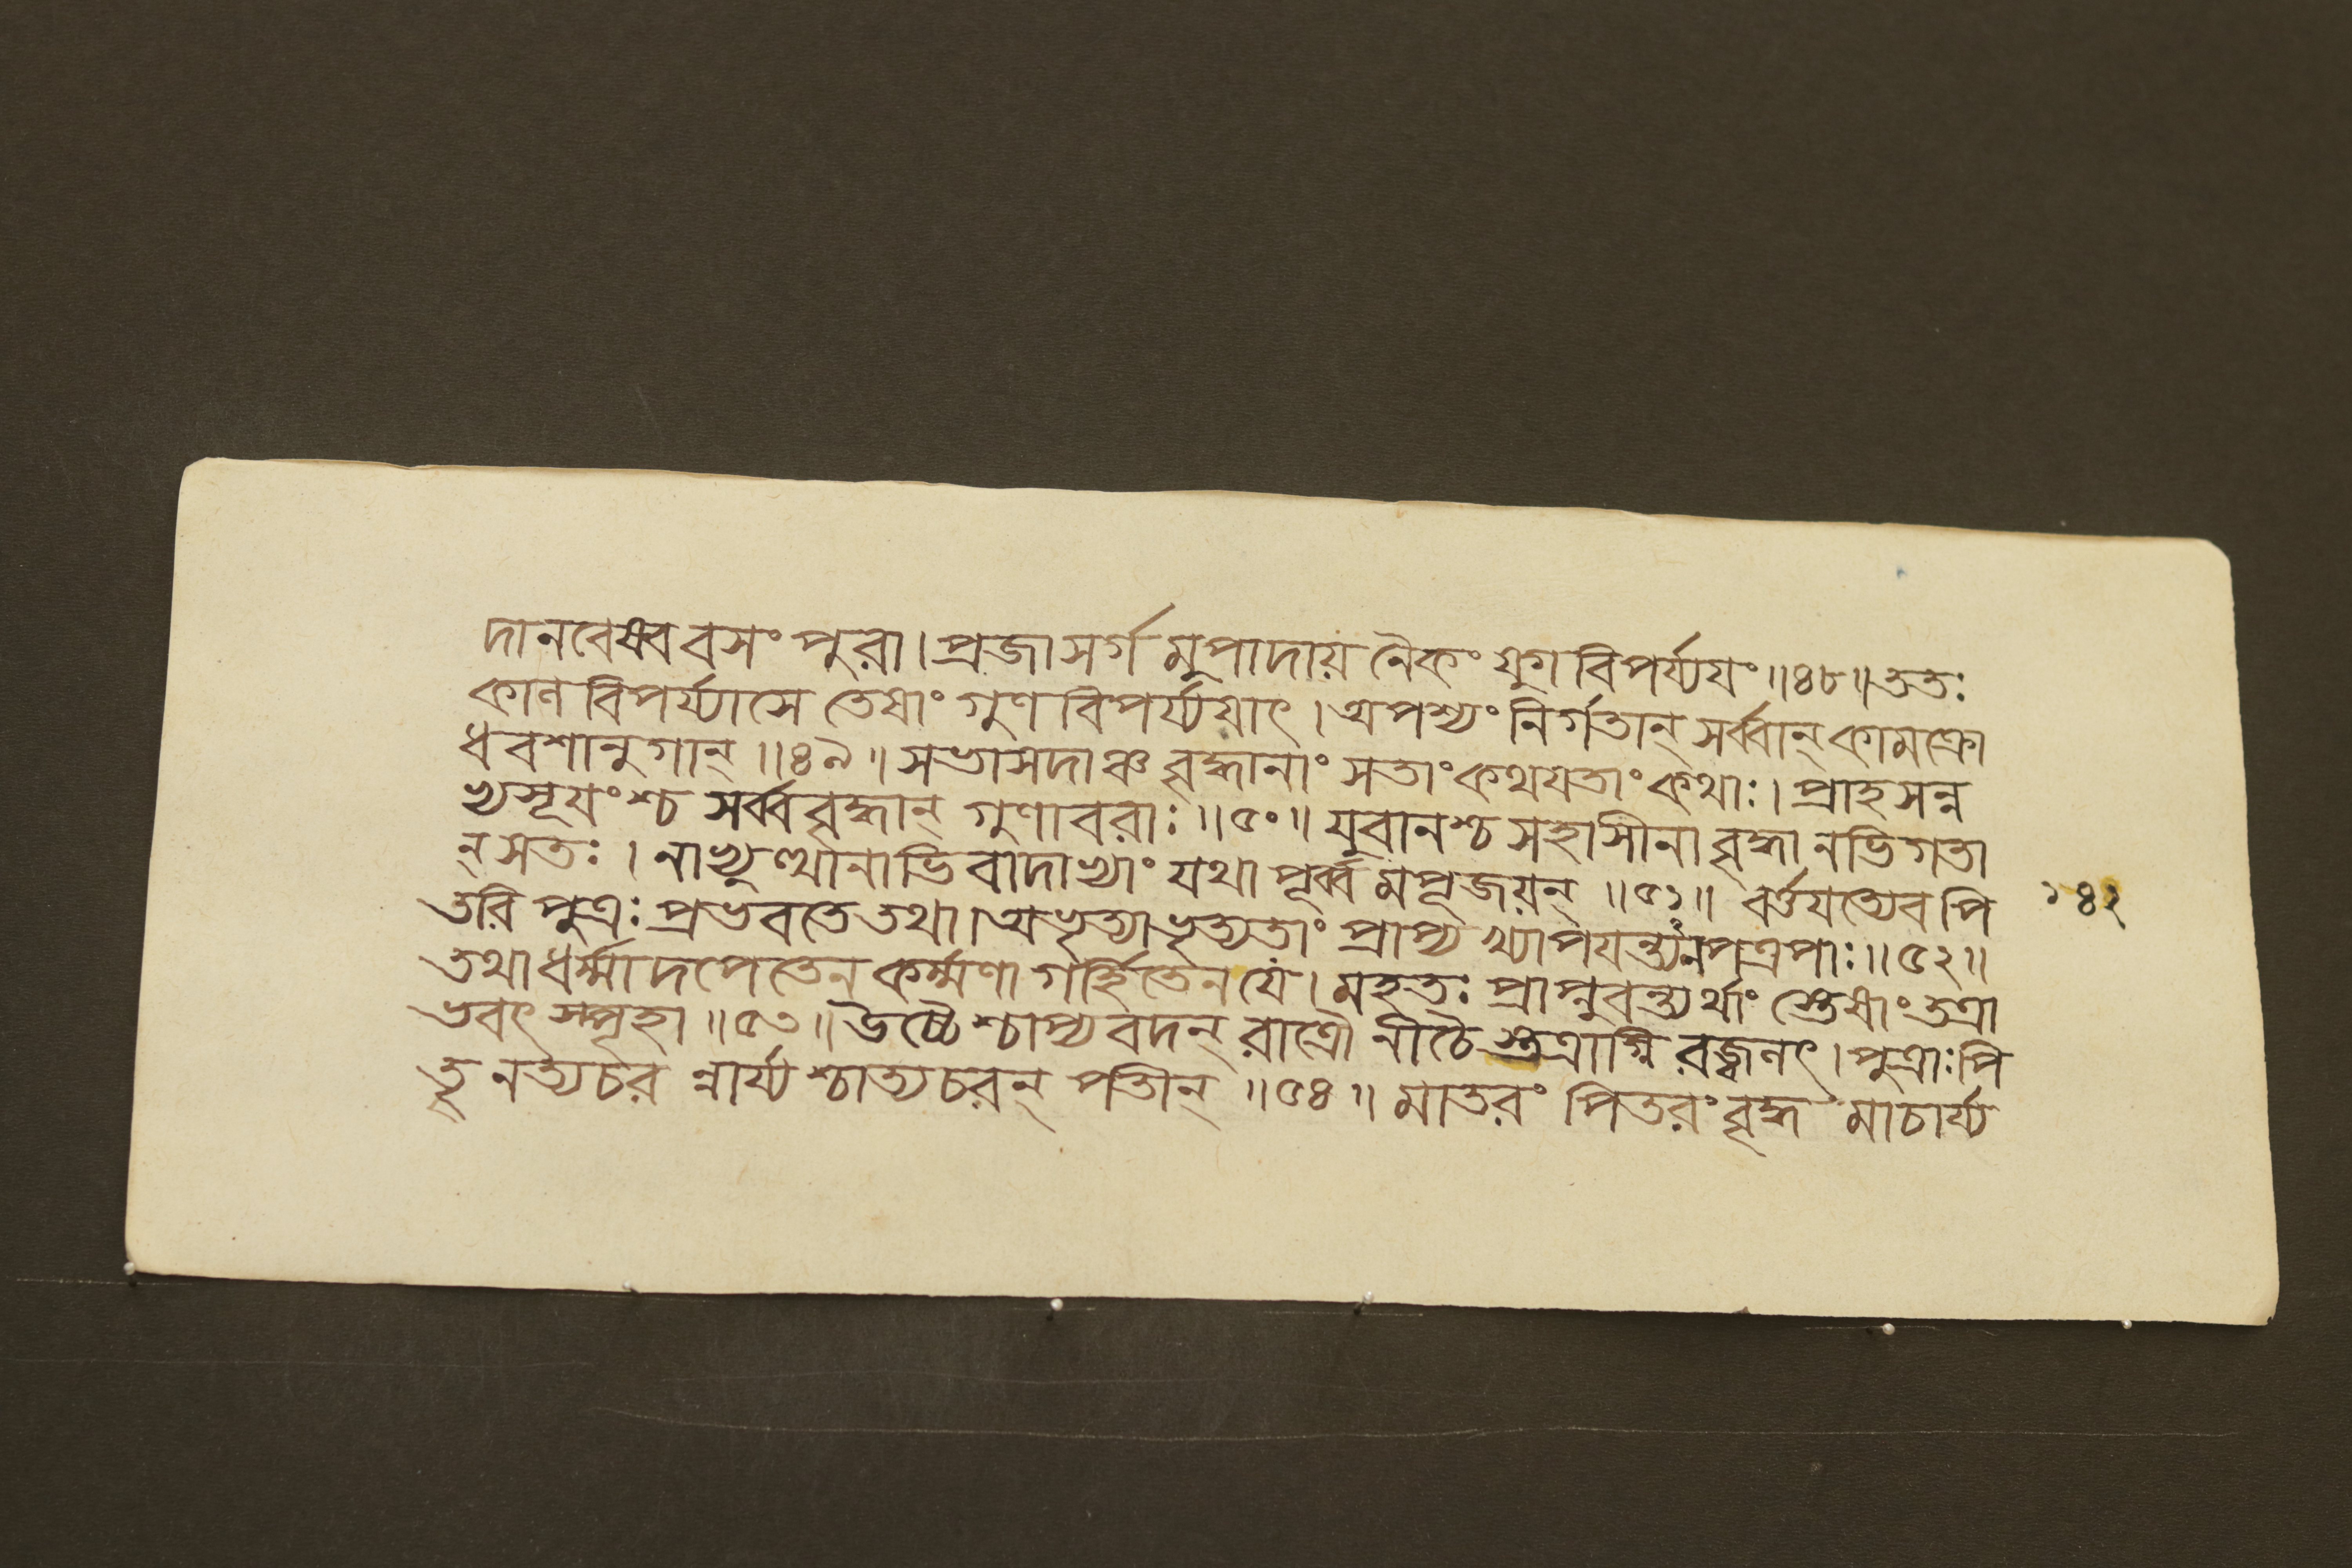 দানবেষ্ববসং পুরা।প্রজাসর্গমুপাদায় নৈকং যুগবিপর্য্যযং॥৪৮॥ততঃ
কালবিপর্য্যাসে তেষাং গুণবিপর্য্যয়াৎ।অপশ্যং নির্গতান্ সর্ব্বান্ কামক্রো
ধবশানুগান্॥৪৯॥সভাসদাঞ্চ বৃদ্ধানাং সতাং কথযতাং কথাঃ।প্রাহসন্ন
ভ্যসূযংশ্চ সর্ব্ববৃদ্ধান্ গুণাবরাঃ॥৫০॥যুবানশ্চ সহাসীনা বৃদ্ধানভিগতা
ন্ সতঃ।নাভ্যুত্থানাভিবাদাভ্যাং যথাপূর্ব্বমপূজয়ন্॥৫১॥ বর্ত্তযত্যেব পি
তরি পুত্রঃ প্রভবতে তথা।অভৃত্যাভৃত্যতাং প্রাপ্য খ্যাপযন্ত্যনপত্রপাঃ॥৫২॥
১৪২
তথা ধর্ম্মাদপেতেন কর্ম্মণা গর্হিতেন যে।মহতঃ প্রাপ্নুবন্ত্যর্থাং স্তেষাং তত্রা
ভবৎ স্পৃহা॥৫৩॥উচ্চৈশ্চাপ্যবদন্ রাত্রৌ নীচৈস্তত্রাগ্নিরজ্বলৎ।পুত্রাঃ পি
তৄনত্যচরন্নার্য্যশ্চাত্যচরন্ পতীন্॥৫৪॥মাতরং পিতরং বৃদ্ধমাচার্য্য